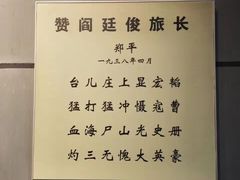 赞阎廷俊旅长
郑平
一九三八年四月
台儿庄上显宏韬
猛打猛冲慑寇曹
血海尸山光史册
灼三无愧大英豪